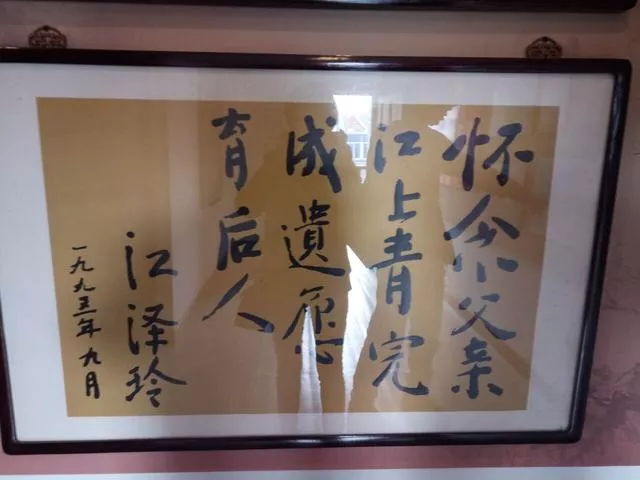 怀念父亲
江上青完
成遗愿
育后人
江泽玲
一九九五年九月